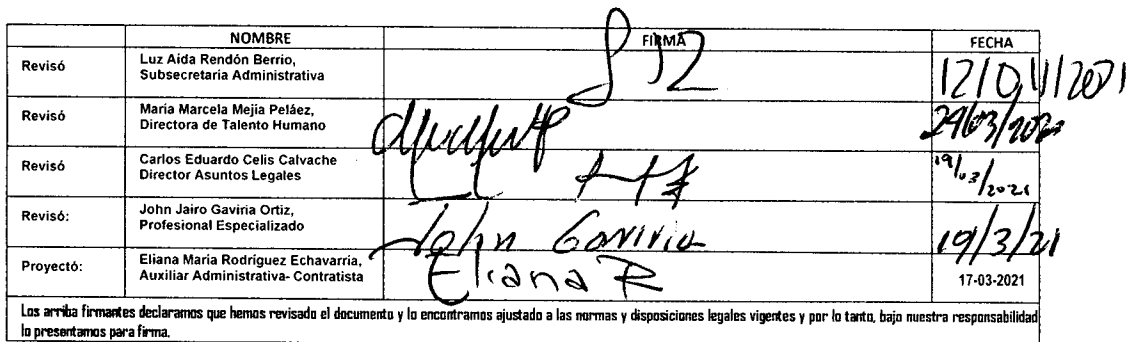 NOMBRE FIRMA FECHA
Revisó Luz Aida Rendón Berrio,
Subsecretaria Administrativa
12/04/2021
Revisó Maria Marcela Mejia Peláez,
Directora de Talento Humano
Revisó Carlos Eduardo Celis Calvache
Director Asuntos Legales
19/03/2021
Revisó: John Jairo Gaviria Ortiz,
Profesional Especializado
John Gaviria 19/3/21
Proyectó: Eliana Maria Rodriguez Echavarria,
Auxiliar Administrativa- Contratista
Eliana R 17-03-2021
Los arriba firmantes declaramos que hemos revisado el documento y lo encontramos ajustado a las normas y disposiciones legales vigentes y por lo tanto, bajo nuestra responsabilidad
lo presentamos para firma.